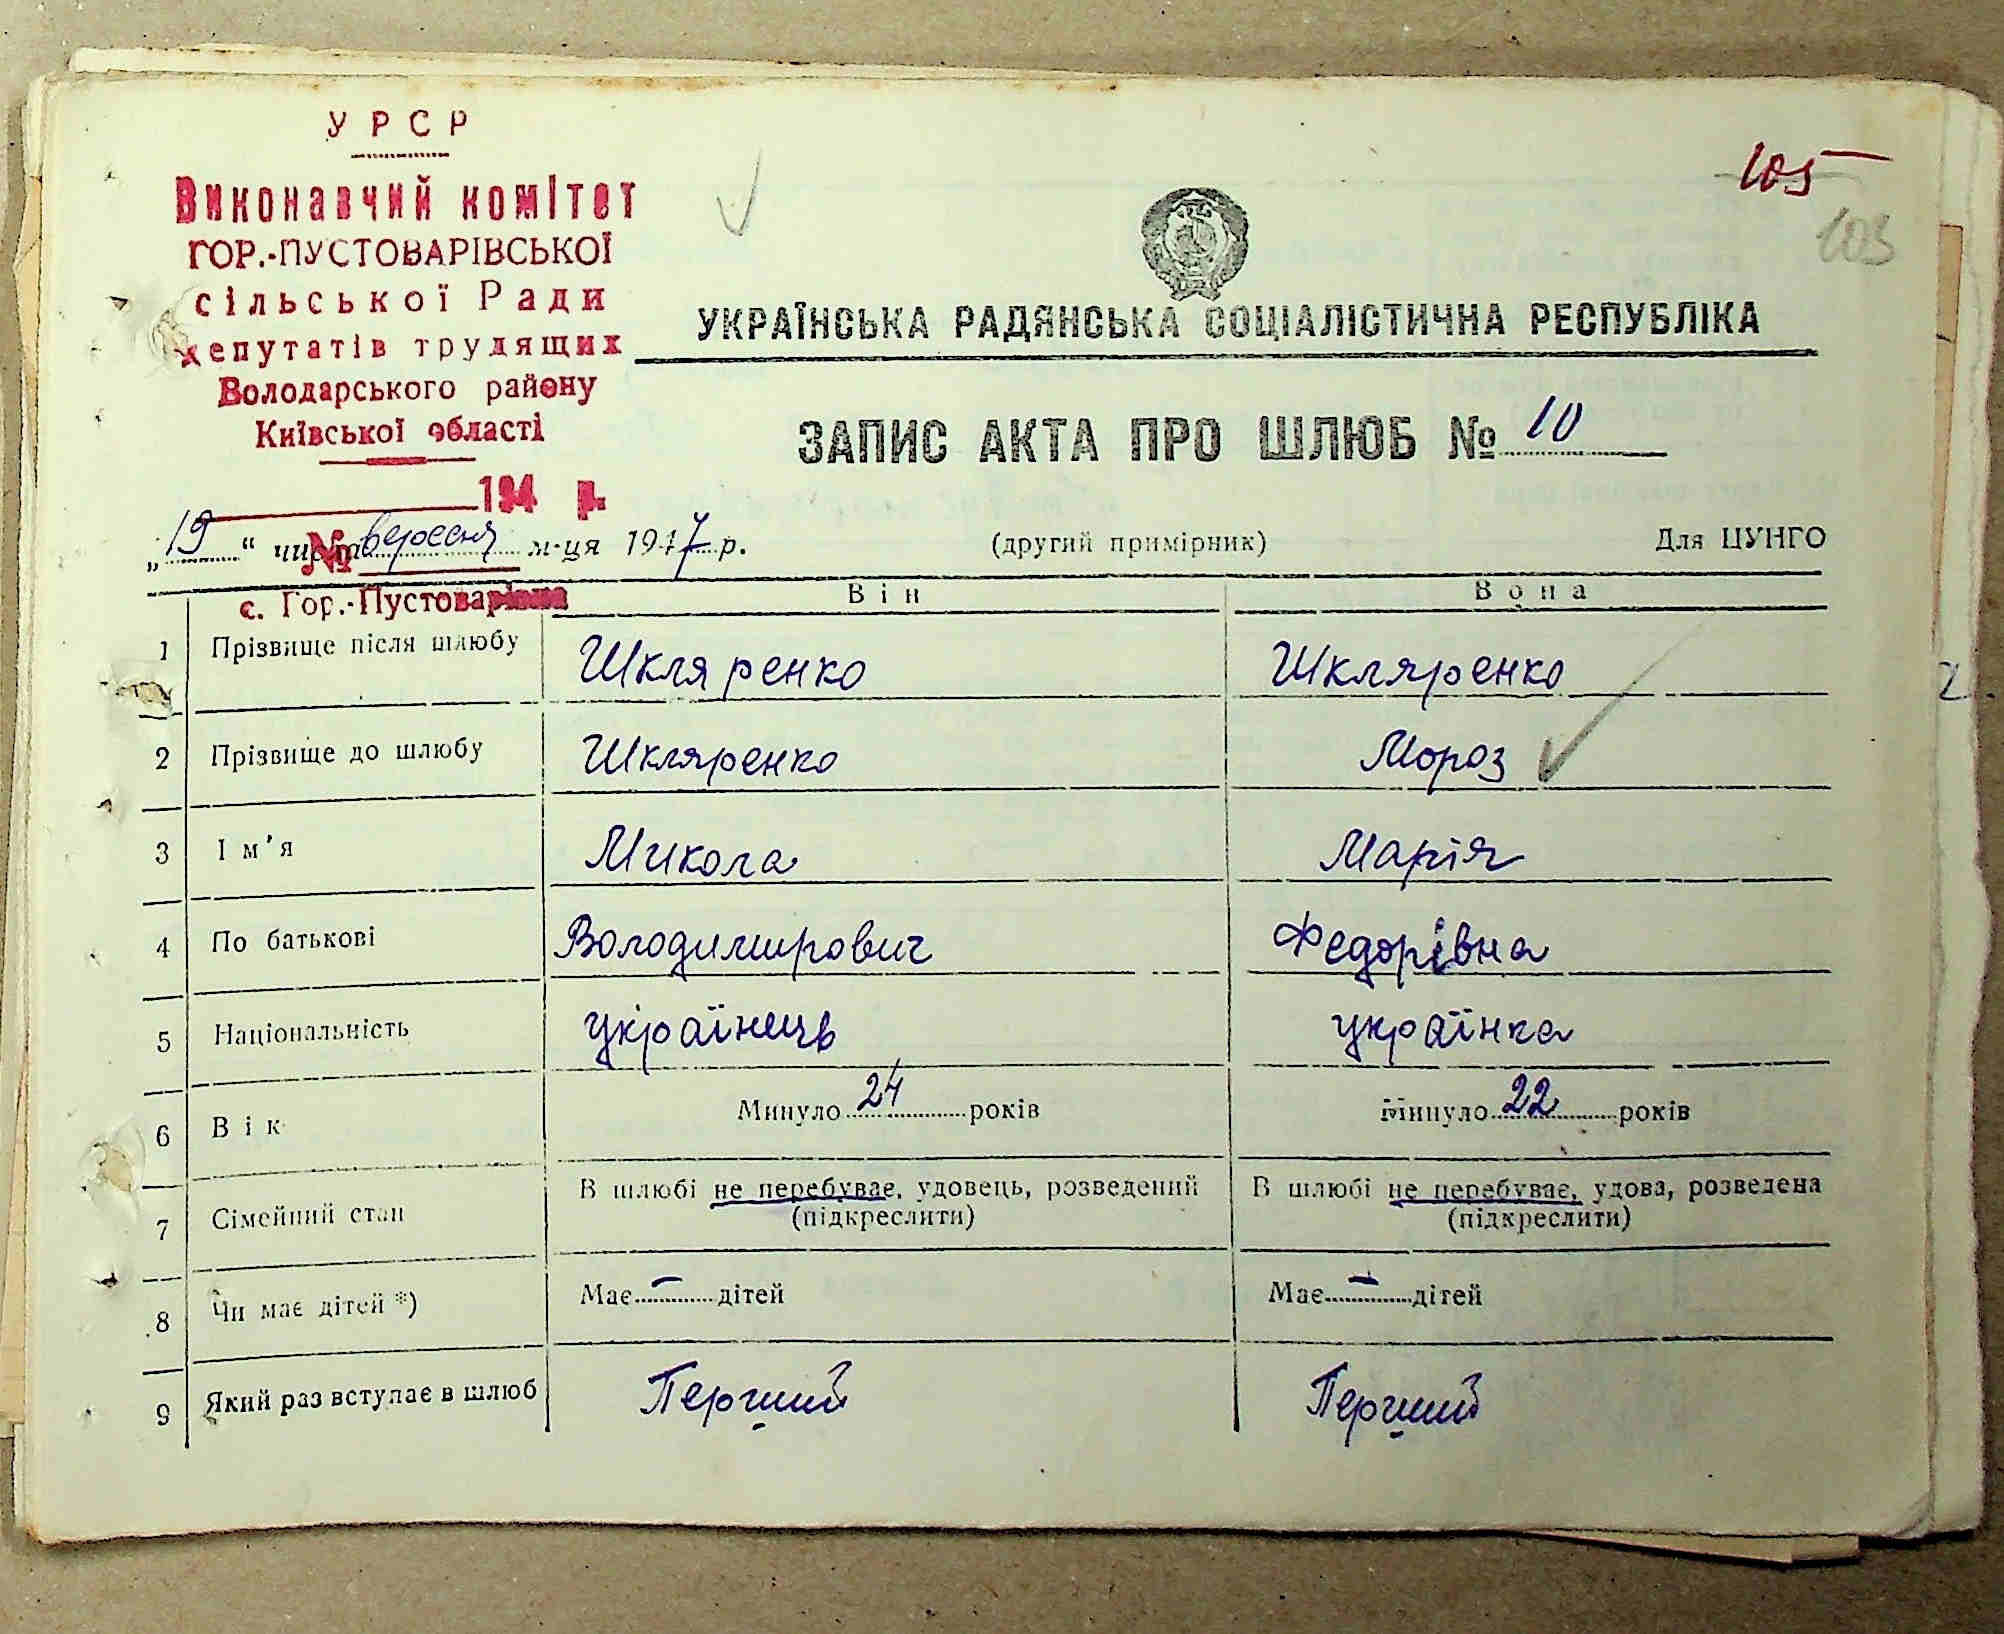 УРСР
Виконавчий комітет
ГОР.-ПУСТОВАРІВСЬКОЇ
сільської Ради
депутатів трудящих
Володарського району
Київської області
194 р.
№
с. Гор.-Пустоварівка
105
103
УКРАЇНСЬКА РАДЯНСЬКА СОЦІАЛІСТИЧНА РЕСПУБЛІКА
ЗАПИС АКТА ПРО ШЛЮБ № 10
„19“ числа вересня м-ця 1947 р. (другий примірник) Для ЦУНГО
Він Вона
1 Прізвище після шлюбу Шкляренко Шкляренко
2 Прізвище до шлюбу Шкляренко Мороз
3 Ім'я Микола Марія
4 По батькові Володимирович Федорівна
5 Національність українець українка
6 Вік Минуло 24 років Минуло 22 років
7 Сімейний стан В шлюбі не перебуває, удовець, розведений В шлюбі не перебуває, удова, розведена
(підкреслити) (підкреслити)
8 Чи має дітей *) Має – дітей Має – дітей
9 Який раз вступає в шлюб Перший Перший